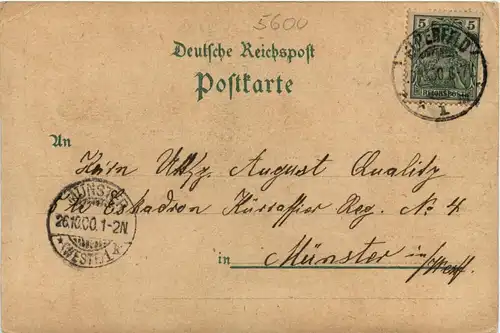 5600
5 5
ELBERFELD
REICHSPOST
1
Deutsche Reichspost
Postkarte
An
Herrn Utffz. August Qualitz
Eskadron Kürassier Reg. No 4
MÜNSTER
26.10.00.1-2N
(WESTF.)
in Münster in/Westf